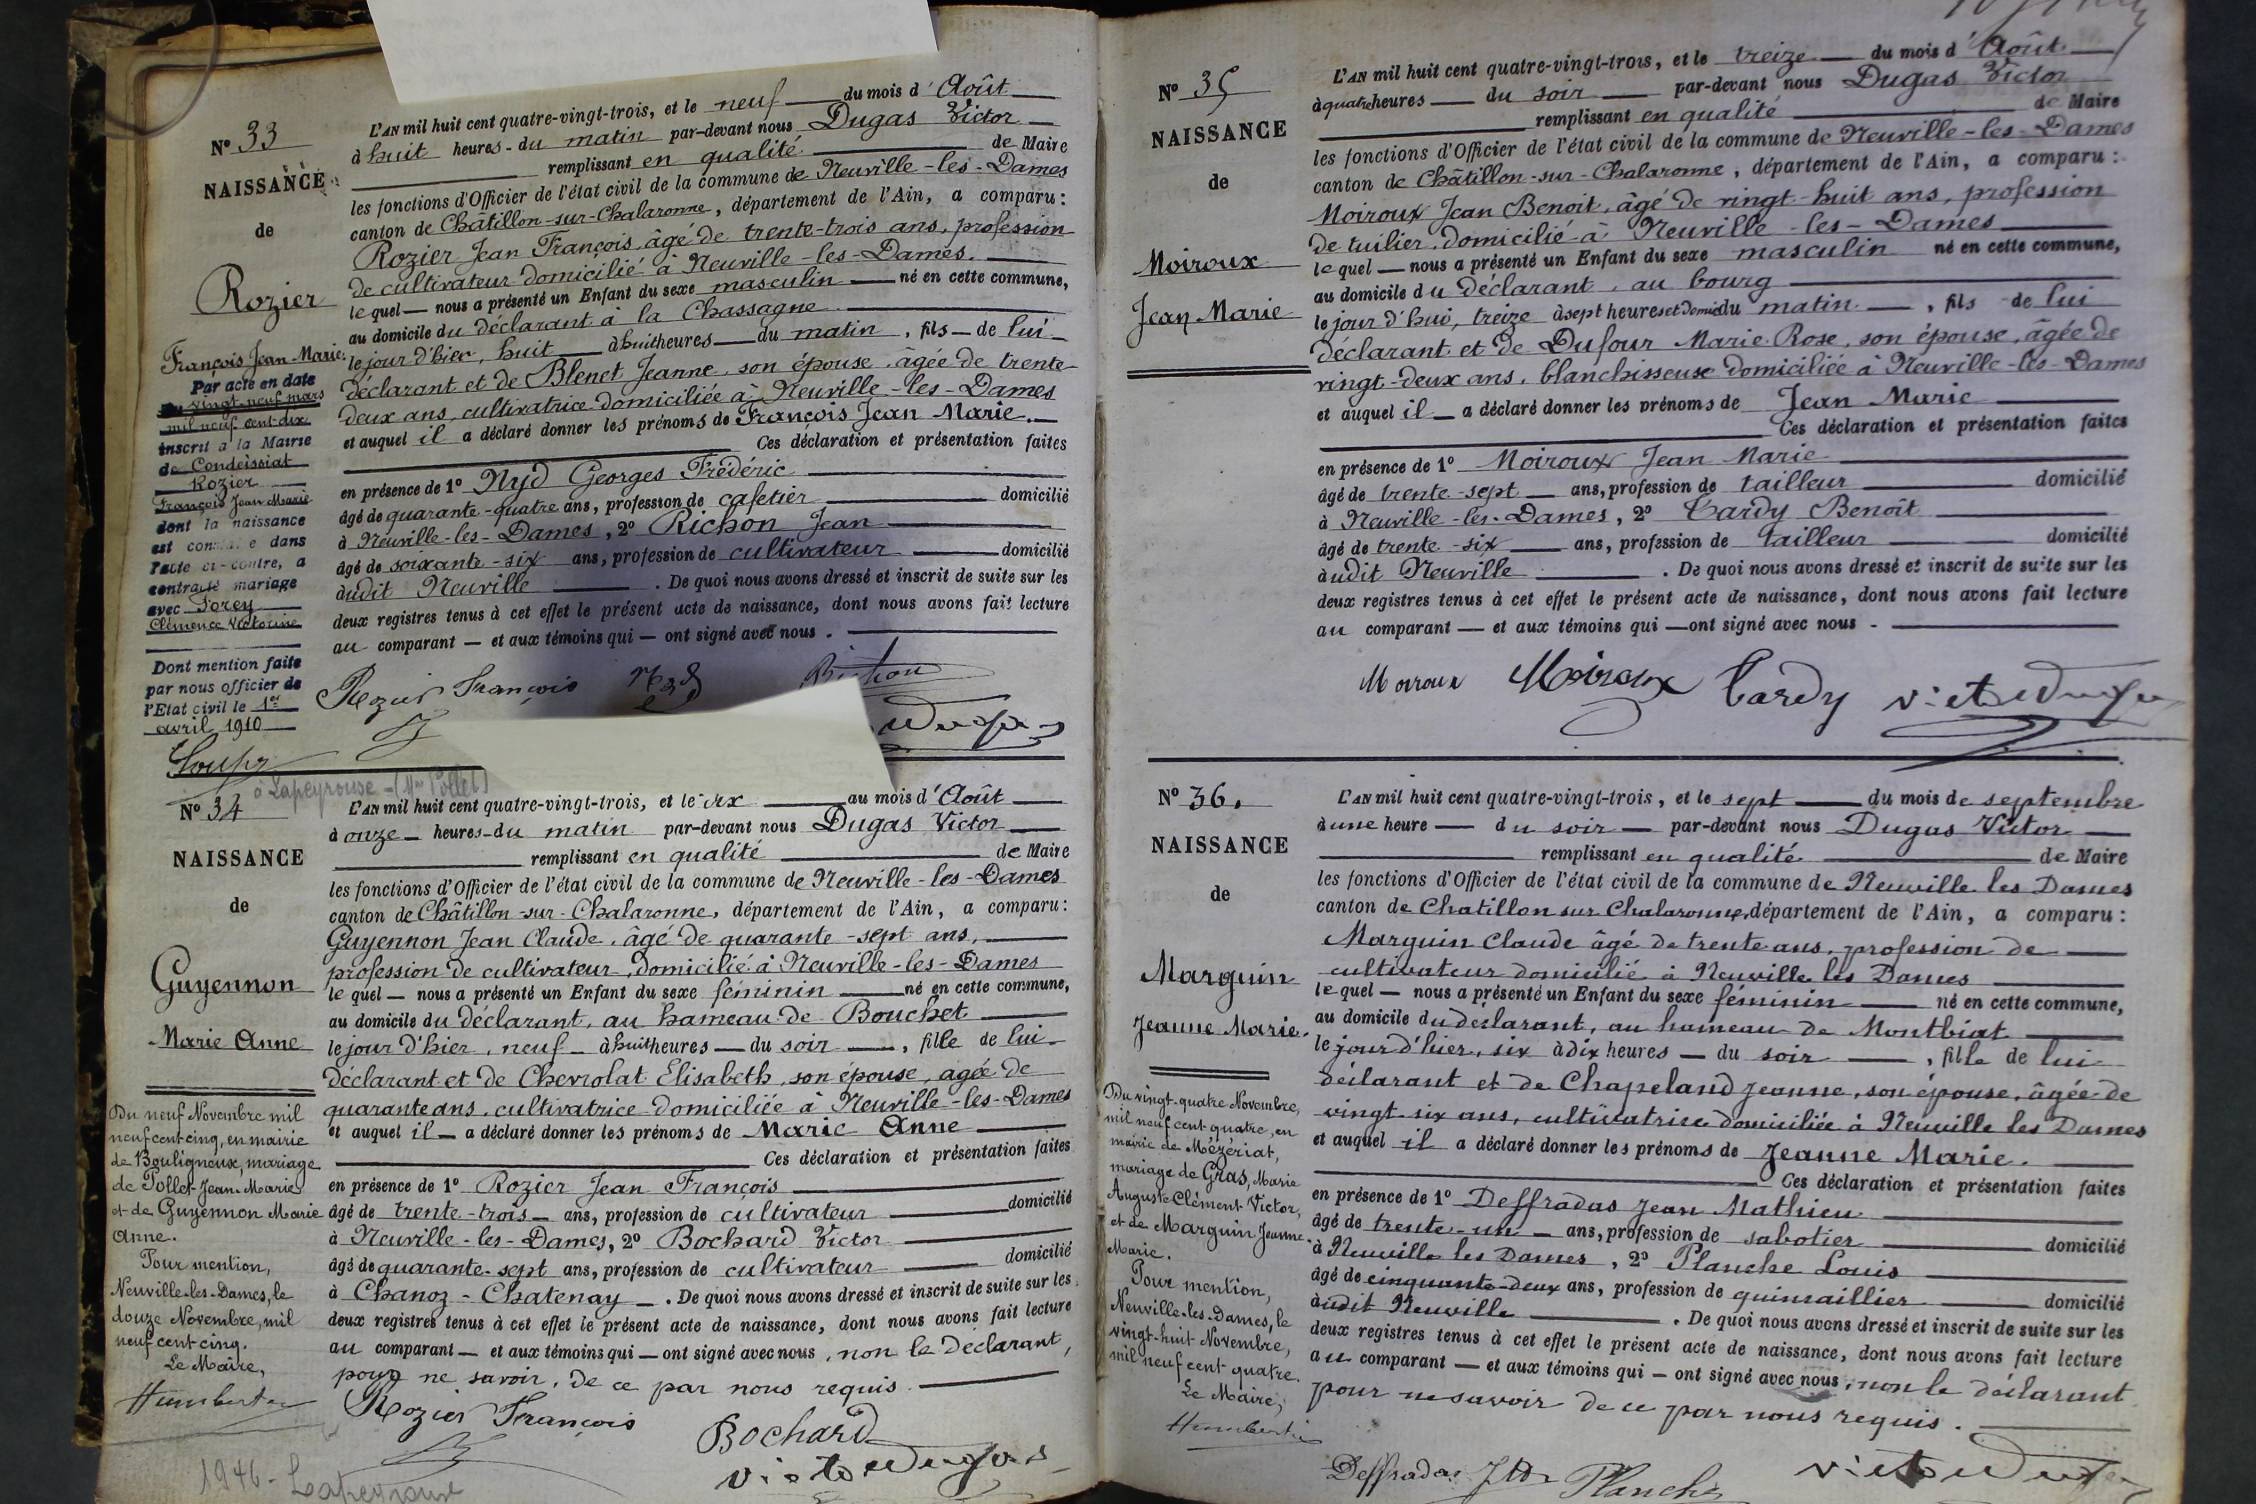 Nº 33
NAISSANCE
de
Rozier
François Jean-Marie.
Par acte en date
du vingt-neuf mars
mil neuf cent dix
inscrit à la Mairie
de Condeissiat
Rozier
François Jean Marie
dont la naissance
est con e dans
l'acte ci-contre, a
contracté mariage
avec Forey
Clémence Victorine
Dont mention faite
par nous officier de
l'Etat civil le 1er
avril 1910
L'AN mil huit cent quatre-vingt-trois, et le neuf du mois d'Août
à huit heures - du matin par-devant nous Dugas Victor
remplissant en qualité de Maire
les fonctions d'Officier de l'état civil de la commune de Neuville-les-Dames
canton de Châtillon-sur-Chalaronne, département de l'Ain, a comparu :
Rozier Jean François, âgé de trente-trois ans, profession
de cultivateur domicilié à Neuville-les-Dames.
le quel — nous a présenté un Enfant du sexe masculin — né en cette commune,
au domicile du déclarant à la Chassagne
le jour d'hier, huit à huit heures — du matin, fils — de lui
déclarant et de Blenet Jeanne, son épouse, agée de trente
deux ans, cultivatrice domiciliée à Neuville-les-Dames
et auquel il a déclaré donner les prénoms de François Jean Marie.
Ces déclaration et présentation faites
en présence de 1º Nyd Georges Frédéric
âgé de quarante-quatre ans, profession de cafetier domicilié
à Neuville-les-Dames, 2º Richon Jean
âgé de soixante-six ans, profession de cultivateur domicilié
àudit Neuville . De quoi nous avons dressé et inscrit de suite sur les
deux registres tenus à cet effet le présent acte de naissance, dont nous avons fait lecture
au comparant — et aux témoins qui — ont signé avec nous .
Rozier François Nyd Richon
Dugas
à Lapeyrouse - (Mme Pollet)
Nº 34
NAISSANCE
de
Guyennon
Marie Anne
Du neuf Novembre mil
neuf cent cinq, en mairie
de Bouligneux, mariage
de Pollet Jean-Marie
et de Guyennon Marie
Anne.
Pour mention,
Neuville-les-Dames, le
douze Novembre, mil
neuf cent cinq.
Le Maire,
Humbert
L'AN mil huit cent quatre-vingt-trois, et le dix au mois d'Août
à onze — heures - du matin par-devant nous Dugas Victor
remplissant en qualité de Maire
les fonctions d'Officier de l'état civil de la commune de Neuville-les-Dames
canton de Châtillon-sur-Chalaronne, département de l'Ain, a comparu :
Guyennon Jean Claude, âgé de quarante-sept ans,
profession de cultivateur, domicilié à Neuville-les-Dames
le quel — nous a présenté un Enfant du sexe féminin né en cette commune,
au domicile du déclarant, au hameau de Bouchet
le jour d'hier, neuf — à huit heures — du soir — , fille de lui
déclarant et de Chevrolat Elisabeth, son épouse, agée de
quarante ans, cultivatrice domiciliée à Neuville-les-Dames
et auquel il — a déclaré donner les prénoms de Marie Anne
Ces déclaration et présentation faites
en présence de 1º Rozier Jean François
âgé de trente-trois — ans, profession de cultivateur domicilié
à Neuville-les-Dames, 2º Bochard Victor
âgé de quarante-sept ans, profession de cultivateur domicilié
à Chanoz-Chatenay — . De quoi nous avons dressé et inscrit de suite sur les
deux registres tenus à cet effet le présent acte de naissance, dont nous avons fait lecture
au comparant — et aux témoins qui — ont signé avec nous, non le déclarant,
pour ne savoir, de ce par nous requis.
Rozier François Bochard
Victor Dugas
1946 - Lapeyrouse
Nº 35
NAISSANCE
de
Moiroux
Jean Marie
L'AN mil huit cent quatre-vingt-trois, et le treize du mois d'Août
à quatre heures — du soir — par-devant nous Dugas Victor
remplissant en qualité de Maire
les fonctions d'Officier de l'état civil de la commune de Neuville-les-Dames
canton de Châtillon-sur-Chalaronne, département de l'Ain, a comparu :
Moiroux Jean Benoit, âgé de vingt-huit ans, profession
de tuilier, domicilié à Neuville-les-Dames
le quel — nous a présenté un Enfant du sexe masculin né en cette commune,
au domicile du déclarant, au bourg
le jour d'hui, treize à sept heures et demie du matin — , fils de lui
déclarant et de Dufour Marie Rose, son épouse, âgée de
vingt-deux ans, blanchisseuse domiciliée à Neuville-les-Dames
et auquel il — a déclaré donner les prénoms de Jean Marie
Ces déclaration et présentation faites
en présence de 1º Moiroux Jean Marie
âgé de trente-sept — ans, profession de tailleur domicilié
à Neuville-les-Dames, 2º Cardy Benoît
âgé de trente-six — ans, profession de tailleur domicilié
àudit Neuville . De quoi nous avons dressé et inscrit de suite sur les
deux registres tenus à cet effet le présent acte de naissance, dont nous avons fait lecture
au comparant — et aux témoins qui — ont signé avec nous -
Moiroux Moiroux Cardy Victor Dugas
Nº 36.
NAISSANCE
de
Marguin
Jeanne Marie.
Du vingt-quatre Novembre,
mil neuf cent quatre, en
mairie de Mézériat,
mariage de Gras, Marie
Auguste Clément Victor,
et de Marguin Jeanne
Marie.
Pour mention,
Neuville-les-Dames, le
vingt-huit Novembre,
mil neuf cent quatre.
Le Maire,
Humbert
L'AN mil huit cent quatre-vingt-trois, et le sept du mois de septembre
à une heure — du soir — par-devant nous Dugas Victor
remplissant en qualité de Maire
les fonctions d'Officier de l'état civil de la commune de Neuville les Dames
canton de Chatillon sur Chalaronne, département de l'Ain, a comparu :
Marguin Claude âgé de trente ans, profession de
cultivateur domicilié à Neuville les Dames
le quel — nous a présenté un Enfant du sexe féminin né en cette commune,
au domicile du déclarant, au hameau de Montbiat
le jour d'hier, six à dix heures — du soir — , fille de lui
déclarant et de Chapeland Jeanne, son épouse, âgée de
vingt six ans, cultivatrice domiciliée à Neuville les Dames
et auquel il a déclaré donner les prénoms de Jeanne Marie.
Ces déclaration et présentation faites
en présence de 1º Deffradas Jean Mathieu
âgé de trente-un — ans, profession de sabotier domicilié
à Neuville les Dames, 2º Planche Louis
âgé de cinquante-deux ans, profession de quincaillier domicilié
àudit Neuville . De quoi nous avons dressé et inscrit de suite sur les
deux registres tenus à cet effet le présent acte de naissance, dont nous avons fait lecture
au comparant — et aux témoins qui — ont signé avec nous, non le déclarant
pour ne savoir de ce par nous requis.
Deffradas Planche Victor Dugas